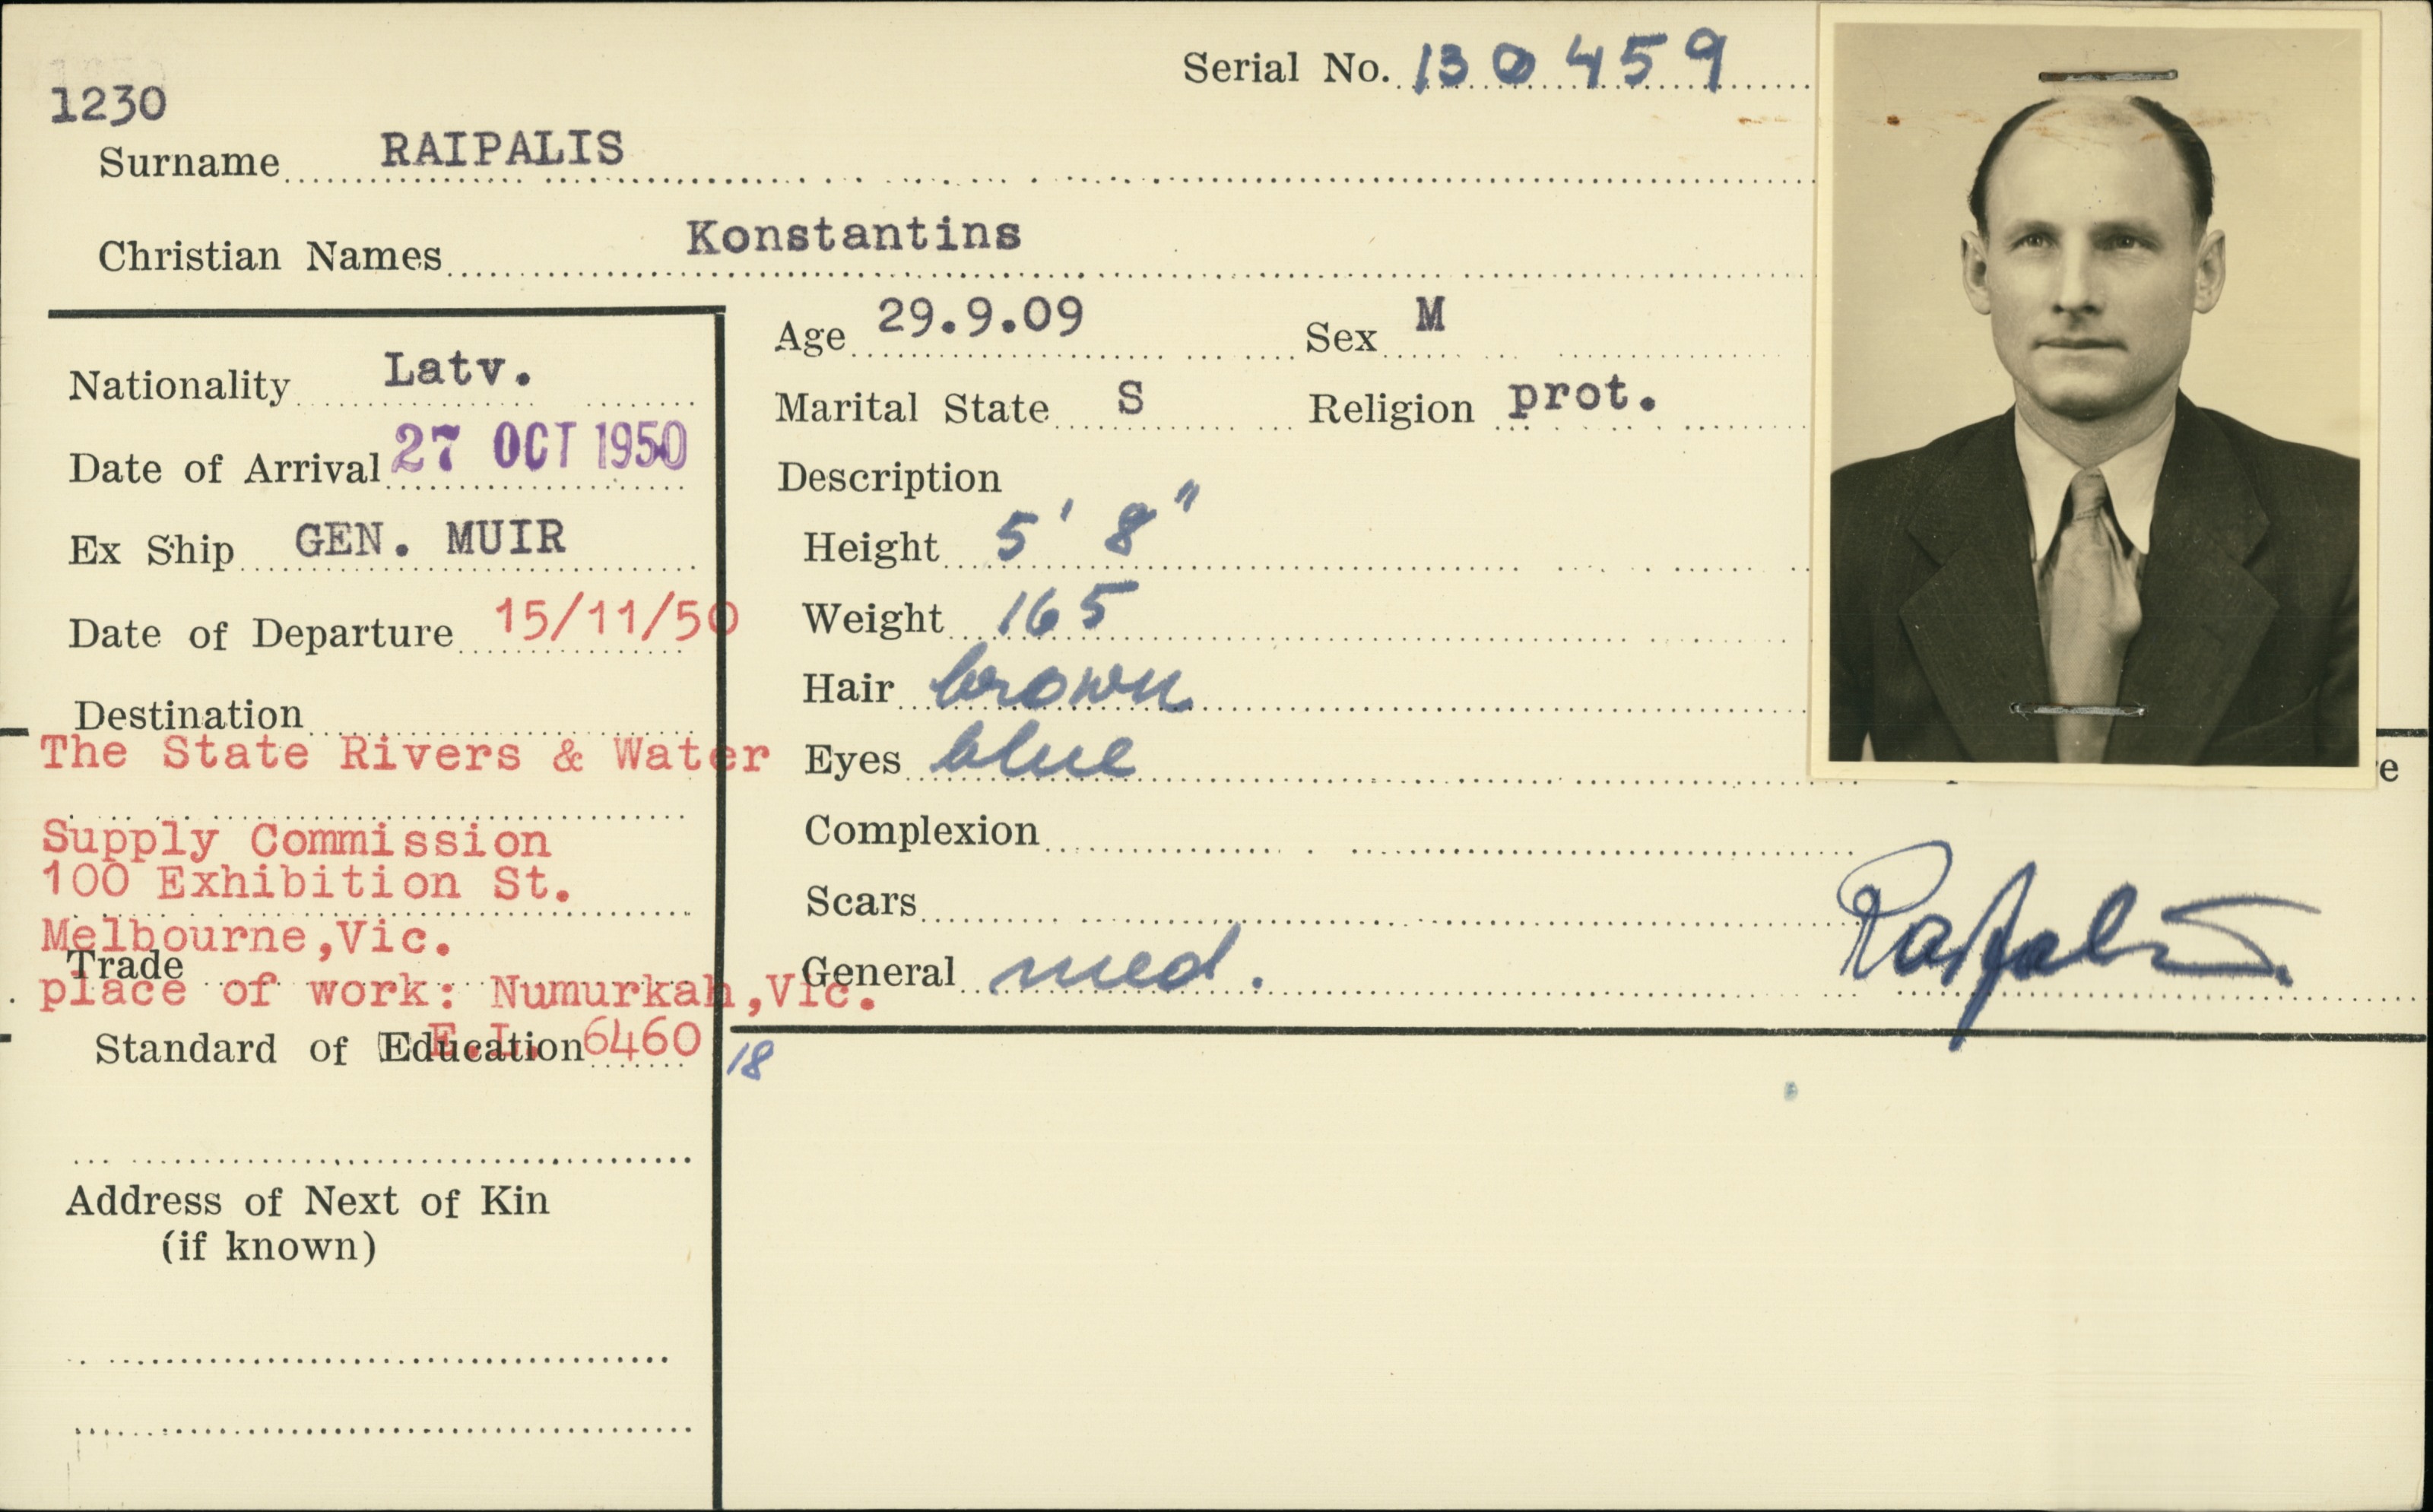 Serial No. 130459
1230
Surname RAIPALIS
Christian Names Konstantins
Age 29.9.09 Sex M
Nationality Latv.
Marital State S Religion prot.
Date of Arrival 27 OCT 1950
Description
Ex Ship GEN. MUIR
Height 5' 8"
Date of Departure 15/11/50
Weight 165
Hair brown
Destination
The State Rivers & Water
Eyes blue
Supply Commission
Complexion
100 Exhibition St.
Scars
Melbourne,Vic.
Trade
General med.
place of work: Numurkah,Vic.
Raipalis.
Standard of Education E.L. 6460
18
Address of Next of Kin
(if known)